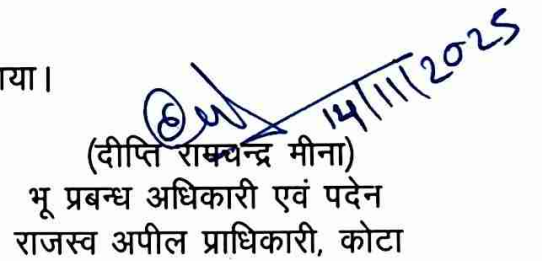 गया।
14/11/2025
(दीप्ति रामचन्द्र मीना)
भू प्रबन्ध अधिकारी एवं पदेन
राजस्व अपील प्राधिकारी, कोटा